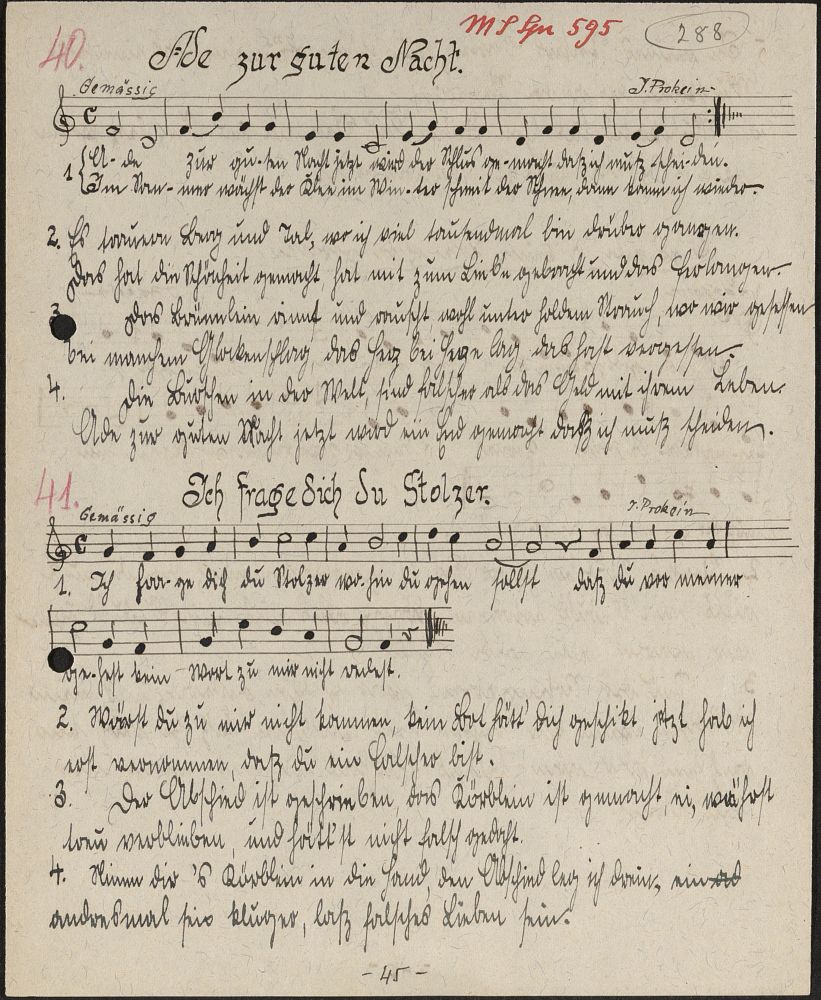 MS Spr 595 288
40. Ade zur guten Nacht.
Gemässig J. Prokein
1 A-de zur gu-ten Nacht jetzt wird der Schlus ge-macht daß ich muß schei-den.
Im Som-mer wächst der Klee im Win-ter schneit der Schnee, dann komm ich wieder.
2. Es trauern Berg und Tal, wo ich viel tausendmal bin drüber gangen.
Das hat die Schönheit gemacht hat mit zum Lieb'n gebracht und das Verlangen.
3. Das Brünnlein rinnt und rauscht, wohl unter holdem Strauch, wo wir gesessen
bei manchem Glockenschlag, das Herz bei Herze lag das hast vergessen.
4. Die Burschen in der Welt, sind fälscher als das Geld mit ihrem Leben.
Ade zur guten Nacht jetzt wird ein End gemacht daß ich muß scheiden.
41. Ich frage dich du Stolzer.
Gemässig J. Prokein
1. Ich fra-ge dich du Stolzer wo-hin du gehen sollst daß du vor meiner
ge-hest kein Wort zu mir nicht redest.
2. Wärst du zu mir nicht kommen, kein Bot hätt' dich geschikt, jetzt hab ich
erst vernommen, daß du ein falscher bist.
3. Der Abschied ist geschrieben, das Körblein ist gemacht, ei, währst
treu verblieben, und hätt'st nicht falsch gedacht.
4. Nimm dir 's Körblein in die Hand, den Abschied leg ich drein, ein
andresmal sei klüger, laß falsches Lieben sein.
- 45 -